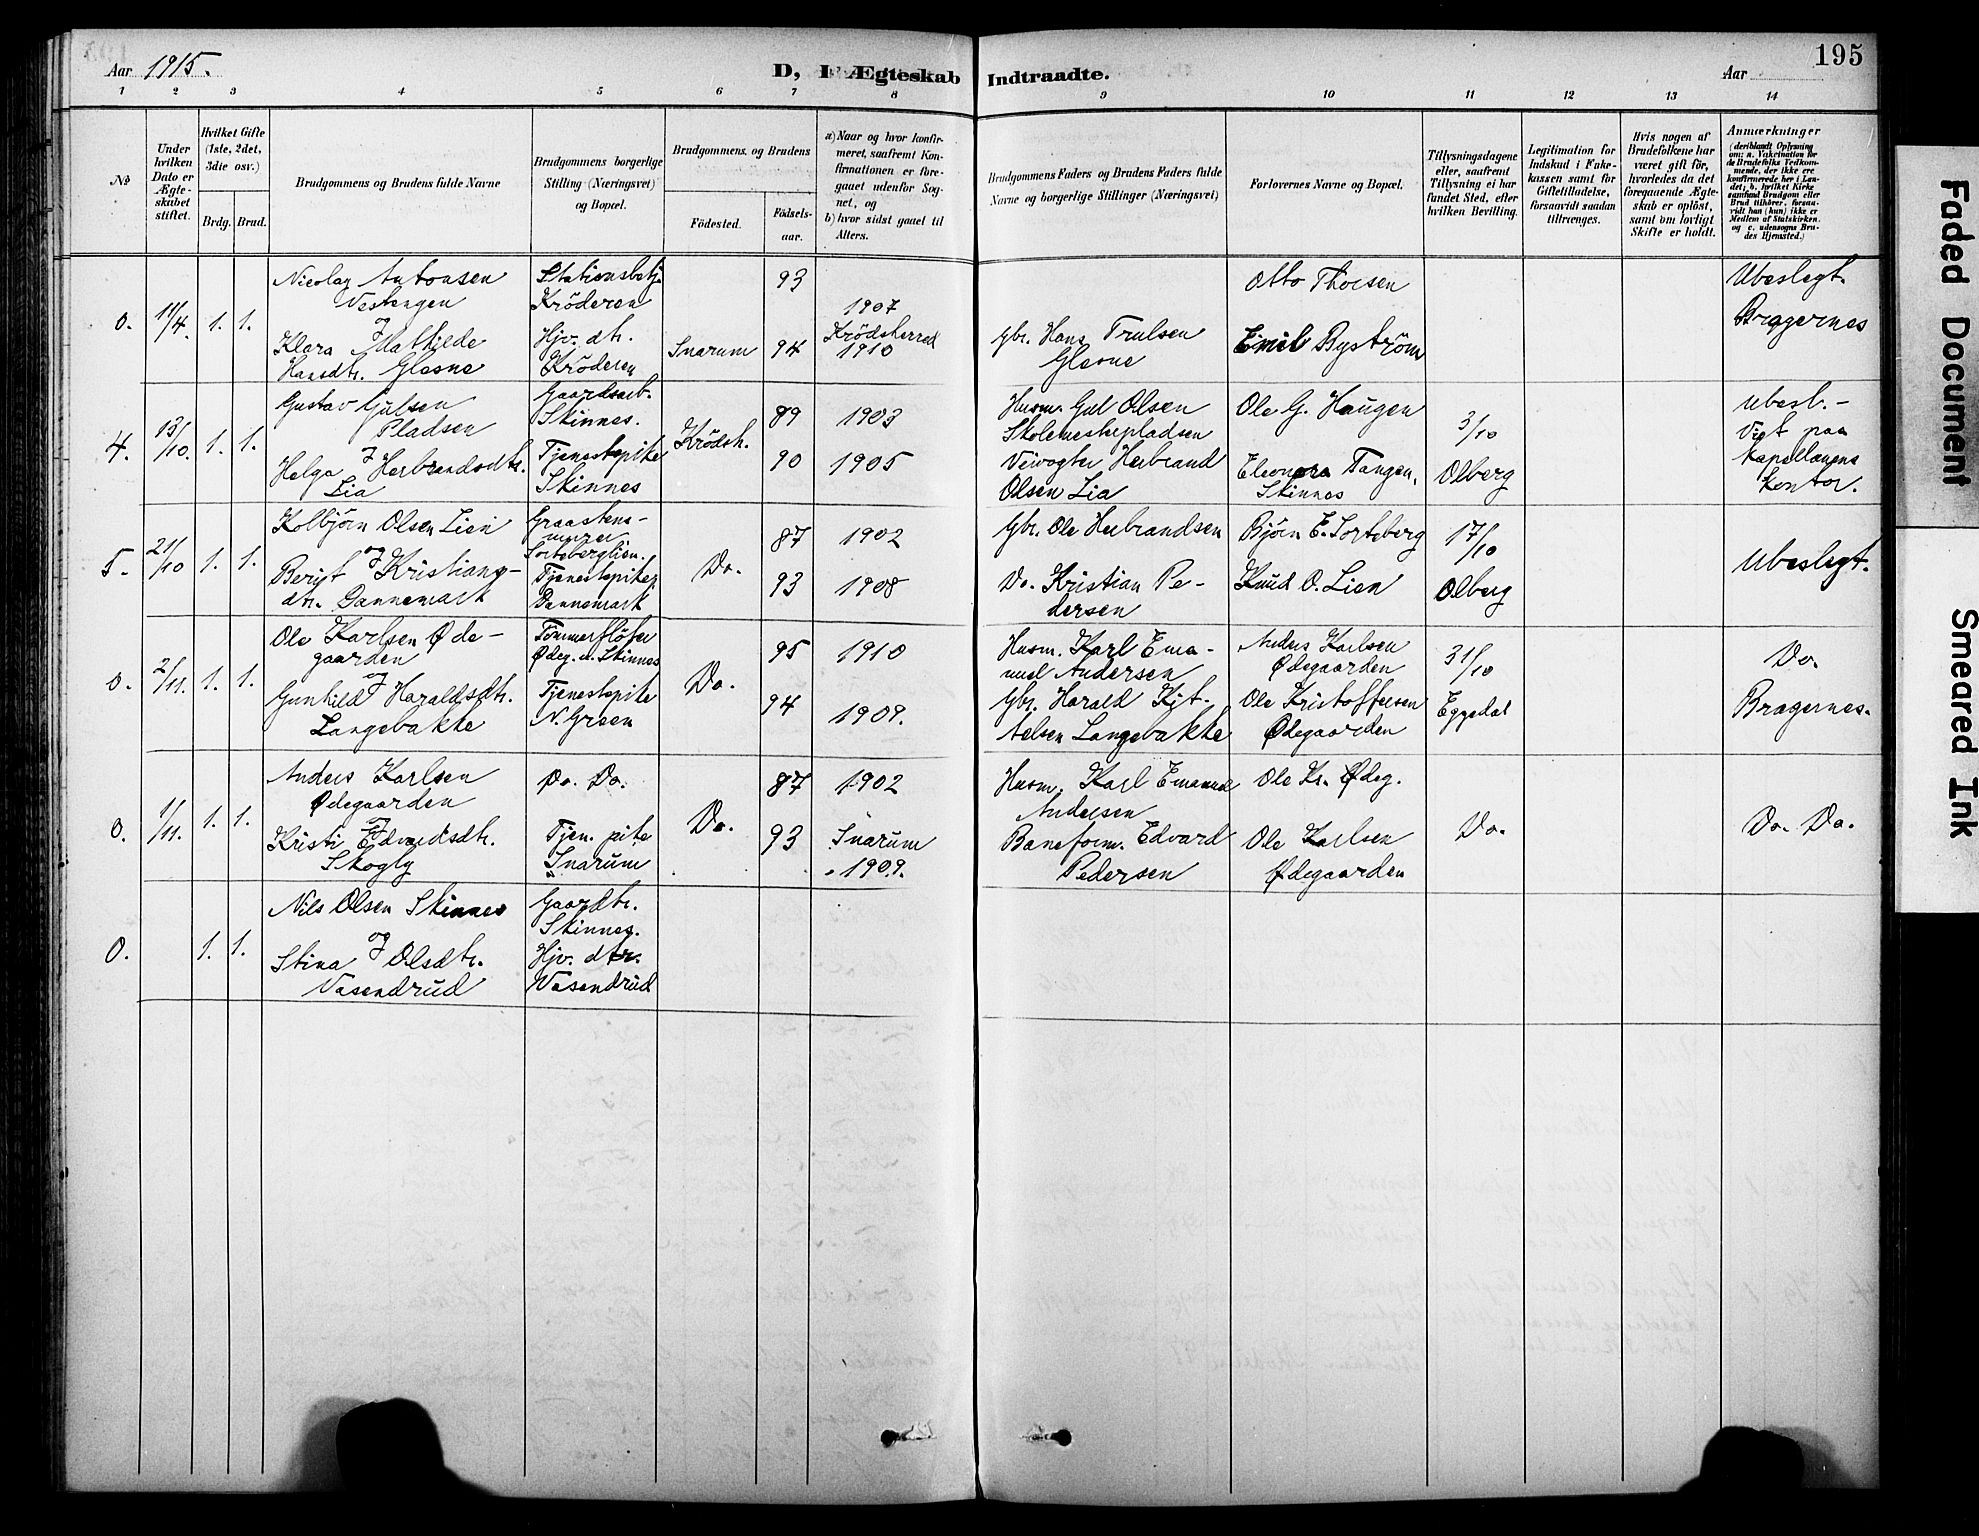 Aar 1915.
D, I Ægteskab Indtraadte.
Aar
195
1 2 3 4 5 6 7 8 9 10 11 12 13 14
No
Under hvilken Dato er Ægteskabet stiftet.
Hvilket Gifte (1ste, 2det, 3die osv.)
Brdg. Brud.
Brudgommens og Brudens fulde Navne
Brudgommens borgerlige Stilling (Næringsvei) og Bopæl.
Brudgommens og Brudens
Födested.
Födselsaar.
a) Naar og hvor konfirmeret, saafremt Konfirmationen er foregaaet udenfor Sognet, og
b) hvor sidst gaaet til Alters.
Brudgommens Faders og Brudens Faders fulde Navne og borgerlige Stillinger (Næringsvei)
Forlovernes Navne og Bopæl.
Tillysningsdagene eller, saafremt Tillysning ei har fundet Sted, efter hvilken Bevilling.
Legitimation for Indskud i Enkekassen samt for Giftetilladelse, forsaavidt saadan tiltrænges.
Hvis nogen af Brudefolkene har været gift för, hvorledes da det foregaaende Ægteskab er oplöst, samt om lovligt Skifte er holdt.
Anmærkninger (deriblandt Oplysning om: a. Vakcination for de Brudefolks Vedkommende, der ikke ere konfirmerede her i Landet; b. hvilket Kirkesamfund Brudgom eller Brud tilhörer, forsaavidt han (hun) ikke er Medlem af Statskirken, og c. udensogns Brudes Hjemsted.)
0. 11/4. 1. 1.
Nicolay Antonsen
Vestengen
og
Klara Mathilde
Hansdtr. Glesne
Stationsbetj.
Kröderen
Hjv. dtr.
Kröderen
Snarum
93
94
1907
Krödsherred
1910
Gbr. Hans Trulsen
Glesne
Otto Thorsen
Emil Byström
Ubeslegt.
Bragernes
4. 13/10. 1. 1.
Gustav Gulsen
Pladsen
og
Helga Herbrandsdtr.
Lia
Gaardsarb.
Skinnes.
Tjenestepike
Skinnes
Krödsh.
89
90
1903
1905
Husm. Gul Olsen
Skolemesterpladsen
Veivogter Herbrand
Olsen Lia
Ole G. Haugen
Eleonora Tangen,
Skinnes
3/10
Olberg
Ubesl. -
Viet paa
Kapellanens
kontor.
5. 21/10 1. 1.
Kolbjörn Olsen Lien
og
Berijt Kristians-
dtr. Dannemark
Graastens-
murer
Sorteberglien.
Tjenestepike
Dannemark
Do.
87
93
1902
1908
Gbr. Ole Herbrandsen
Do. Kristian Pe-
dersen
Bjørn E. Sorteberg
Knud O. Lien
17/10
Olberg
Ubeslegt.
0. 2/11. 1. 1.
Ole Karlsen Øde-
gaarden
og
Gunhild Haraldsdtr.
Langebakke
Tömmerflöter
Ødeg. u. Skinnes
Tjenestepike
N. Green
Do.
95
94
1910
1909.
Husm. Karl Ema-
nuel Andersen
Gbr. Harald Kjt-
telsen Langebakke
Anders Karlsen
Ødegaarden
Ole Kristoffersen
Ødegaarden
31/10
Eggedal
Do.
Bragernes.
0. 1/11. 1. 1.
Anders Karlsen
Ødegaarden
og
Kristi Edvardsdtr.
Skogly
Do. Do.
Tjen. pike
Snarum
Do.
87
93
1902
Snarum
1909.
Husm. Karl Emanuel
Andersen
Baneform. Edvard
Pedersen
Ole Kr. Ødeg.
Ole Karlsen
Ødegaarden
Do.
Do. Do.
0. 1. 1.
Nils Olsen Skinnes
og
Stina Olsdtr.
Vasendrud
Gaardbr.
Skinnes.
Hjv. dtr.
Vasendrud
Faded Document
Smeared Ink